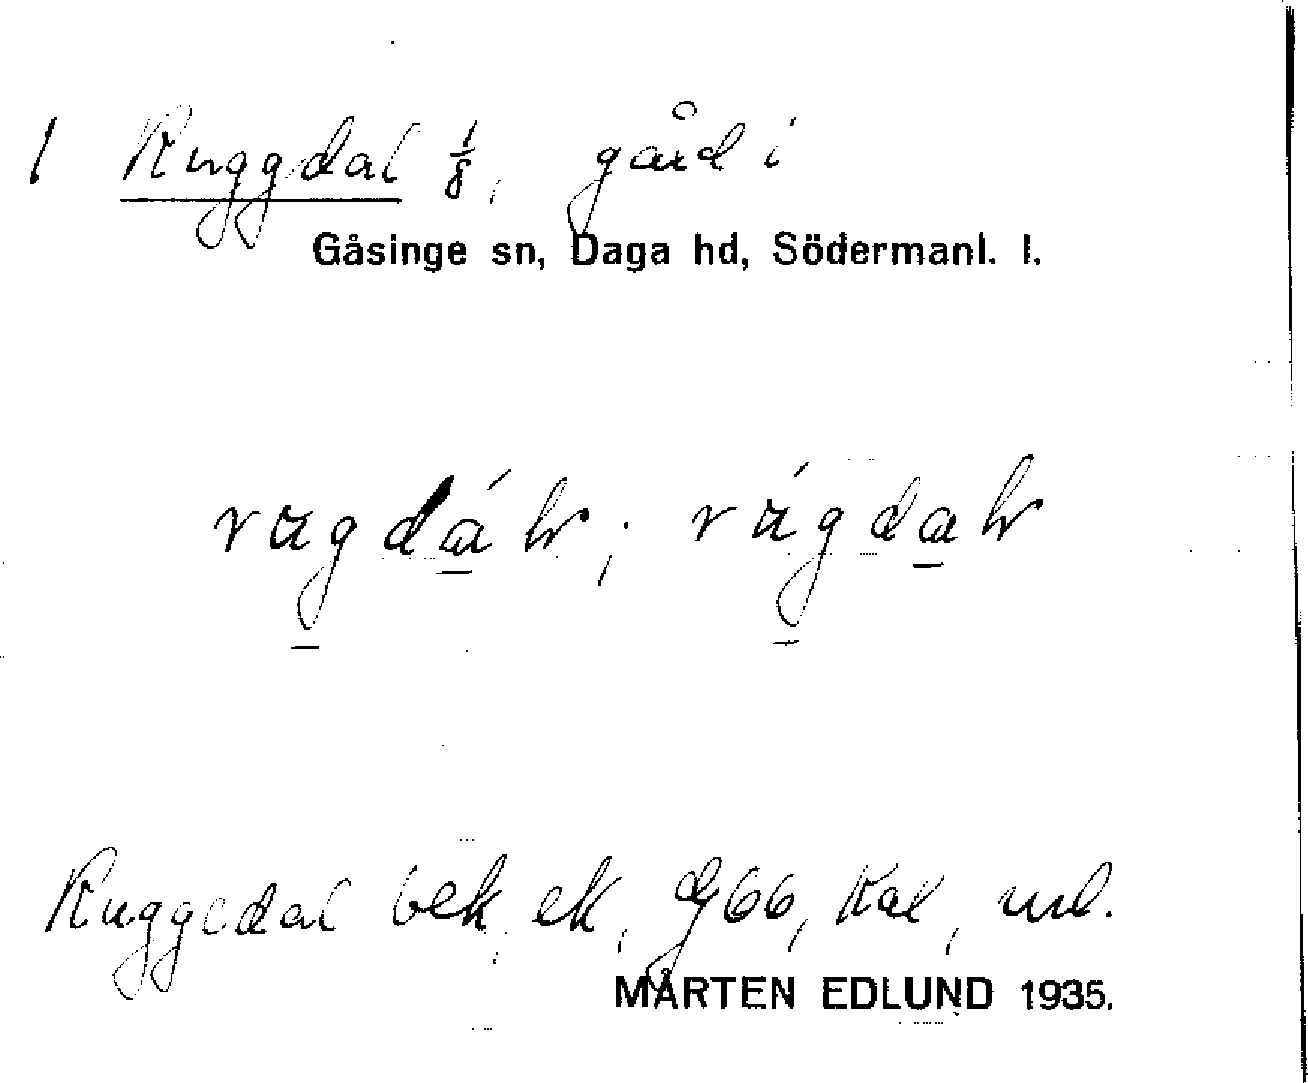 1 Ruggdal 1/8, gård i
Gåsinge sn, Daga hd, Södermanl. l.
Ruggedal bek, ek, dj 66, Kal, url.
MÅRTEN EDLUND 1935.